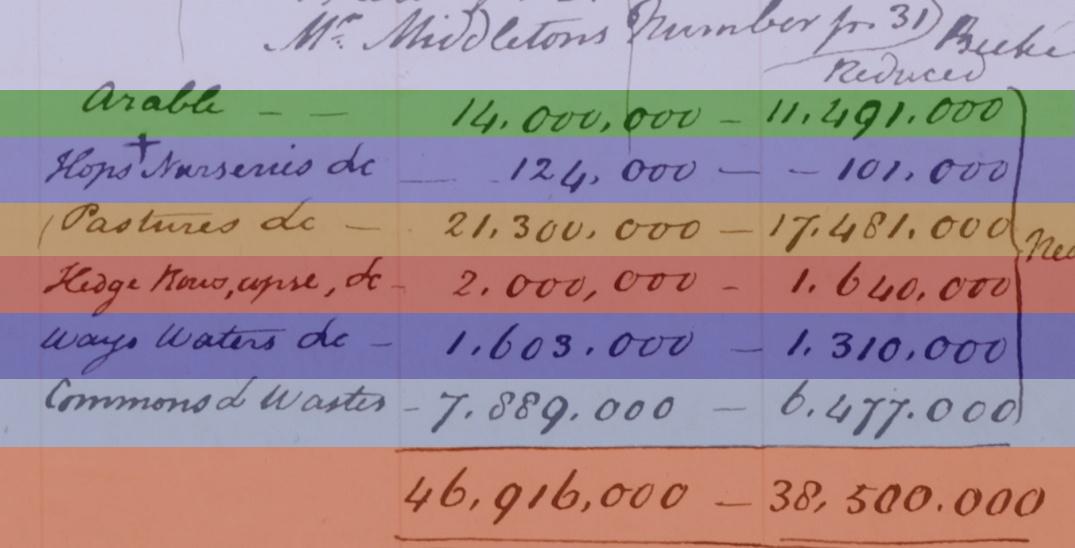 Mr. Middletons Number for 31) Beeke
Reduced
Arable - - 14.000,000 - 11.491.000
+
Hops Nurseries &c - 124,000 - - 101.000
(Pastures &c - 21.300.000 - 17.481.000
Hedge Rows, copse, &c - 2.000,000 - 1.640.000
Ways Waters &c - 1.603.000 - 1.310.000
Commons & Wastes - 7.889.000 - 6.477.000
46,916,000 - 38,500.000